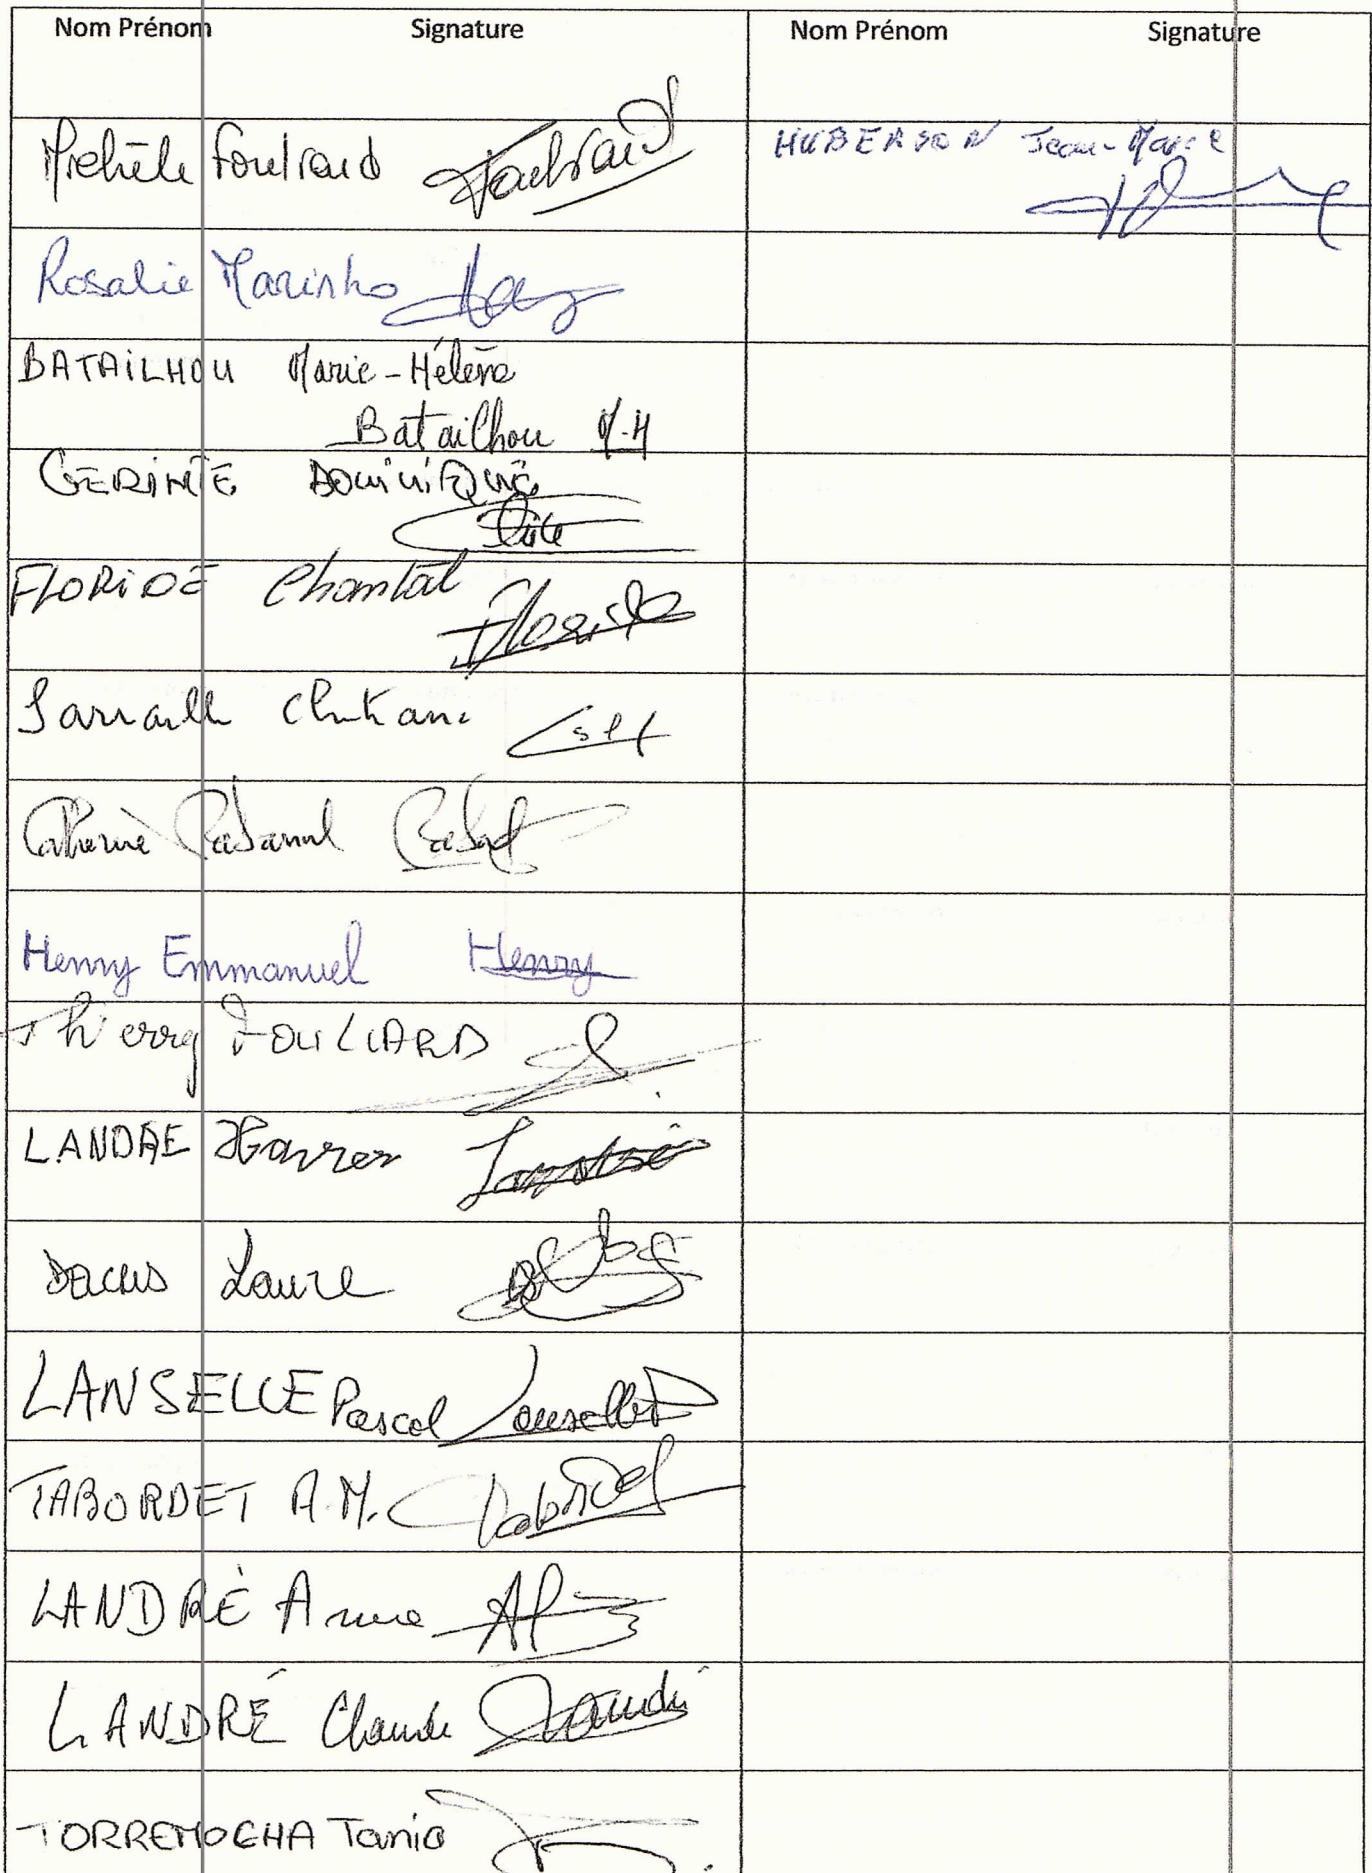 Nom Prénom Signature Nom Prénom Signature
Michèle Foulraud Foulraud
HUBERSON Jean-Marie
Rosalie Marinho
BATAILHOU Marie-Hélène
Batailhou M-H
GERINTE DOMINIQUE
FLORIDE Chantal Floride
Sarraille
Catherine
Henry Emmanuel Henry
Thierry FOULIARD
LANDRE Xavier Landré
Dacus Laure
LANSELLE Pascal Lanselle
TABORDET A.M. Tabordet
LANDRÉ Anne
LANDRÉ Claude Landré
TORREMOCHA Tania